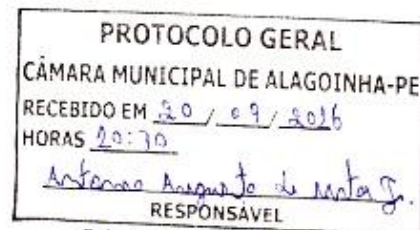 PROTOCOLO GERAL
CÂMARA MUNICIPAL DE ALAGOINHA-PE
RECEBIDO EM 20 / 09 / 2016
HORAS 20:30
Antonio Augusto de Jr.
RESPONSÁVEL